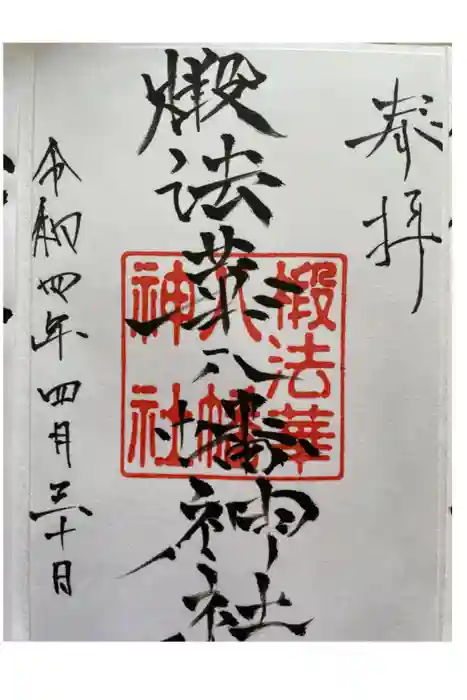 奉拝
煅法華八幡神社
煅法華
八幡
神社
令和四年四月三十日